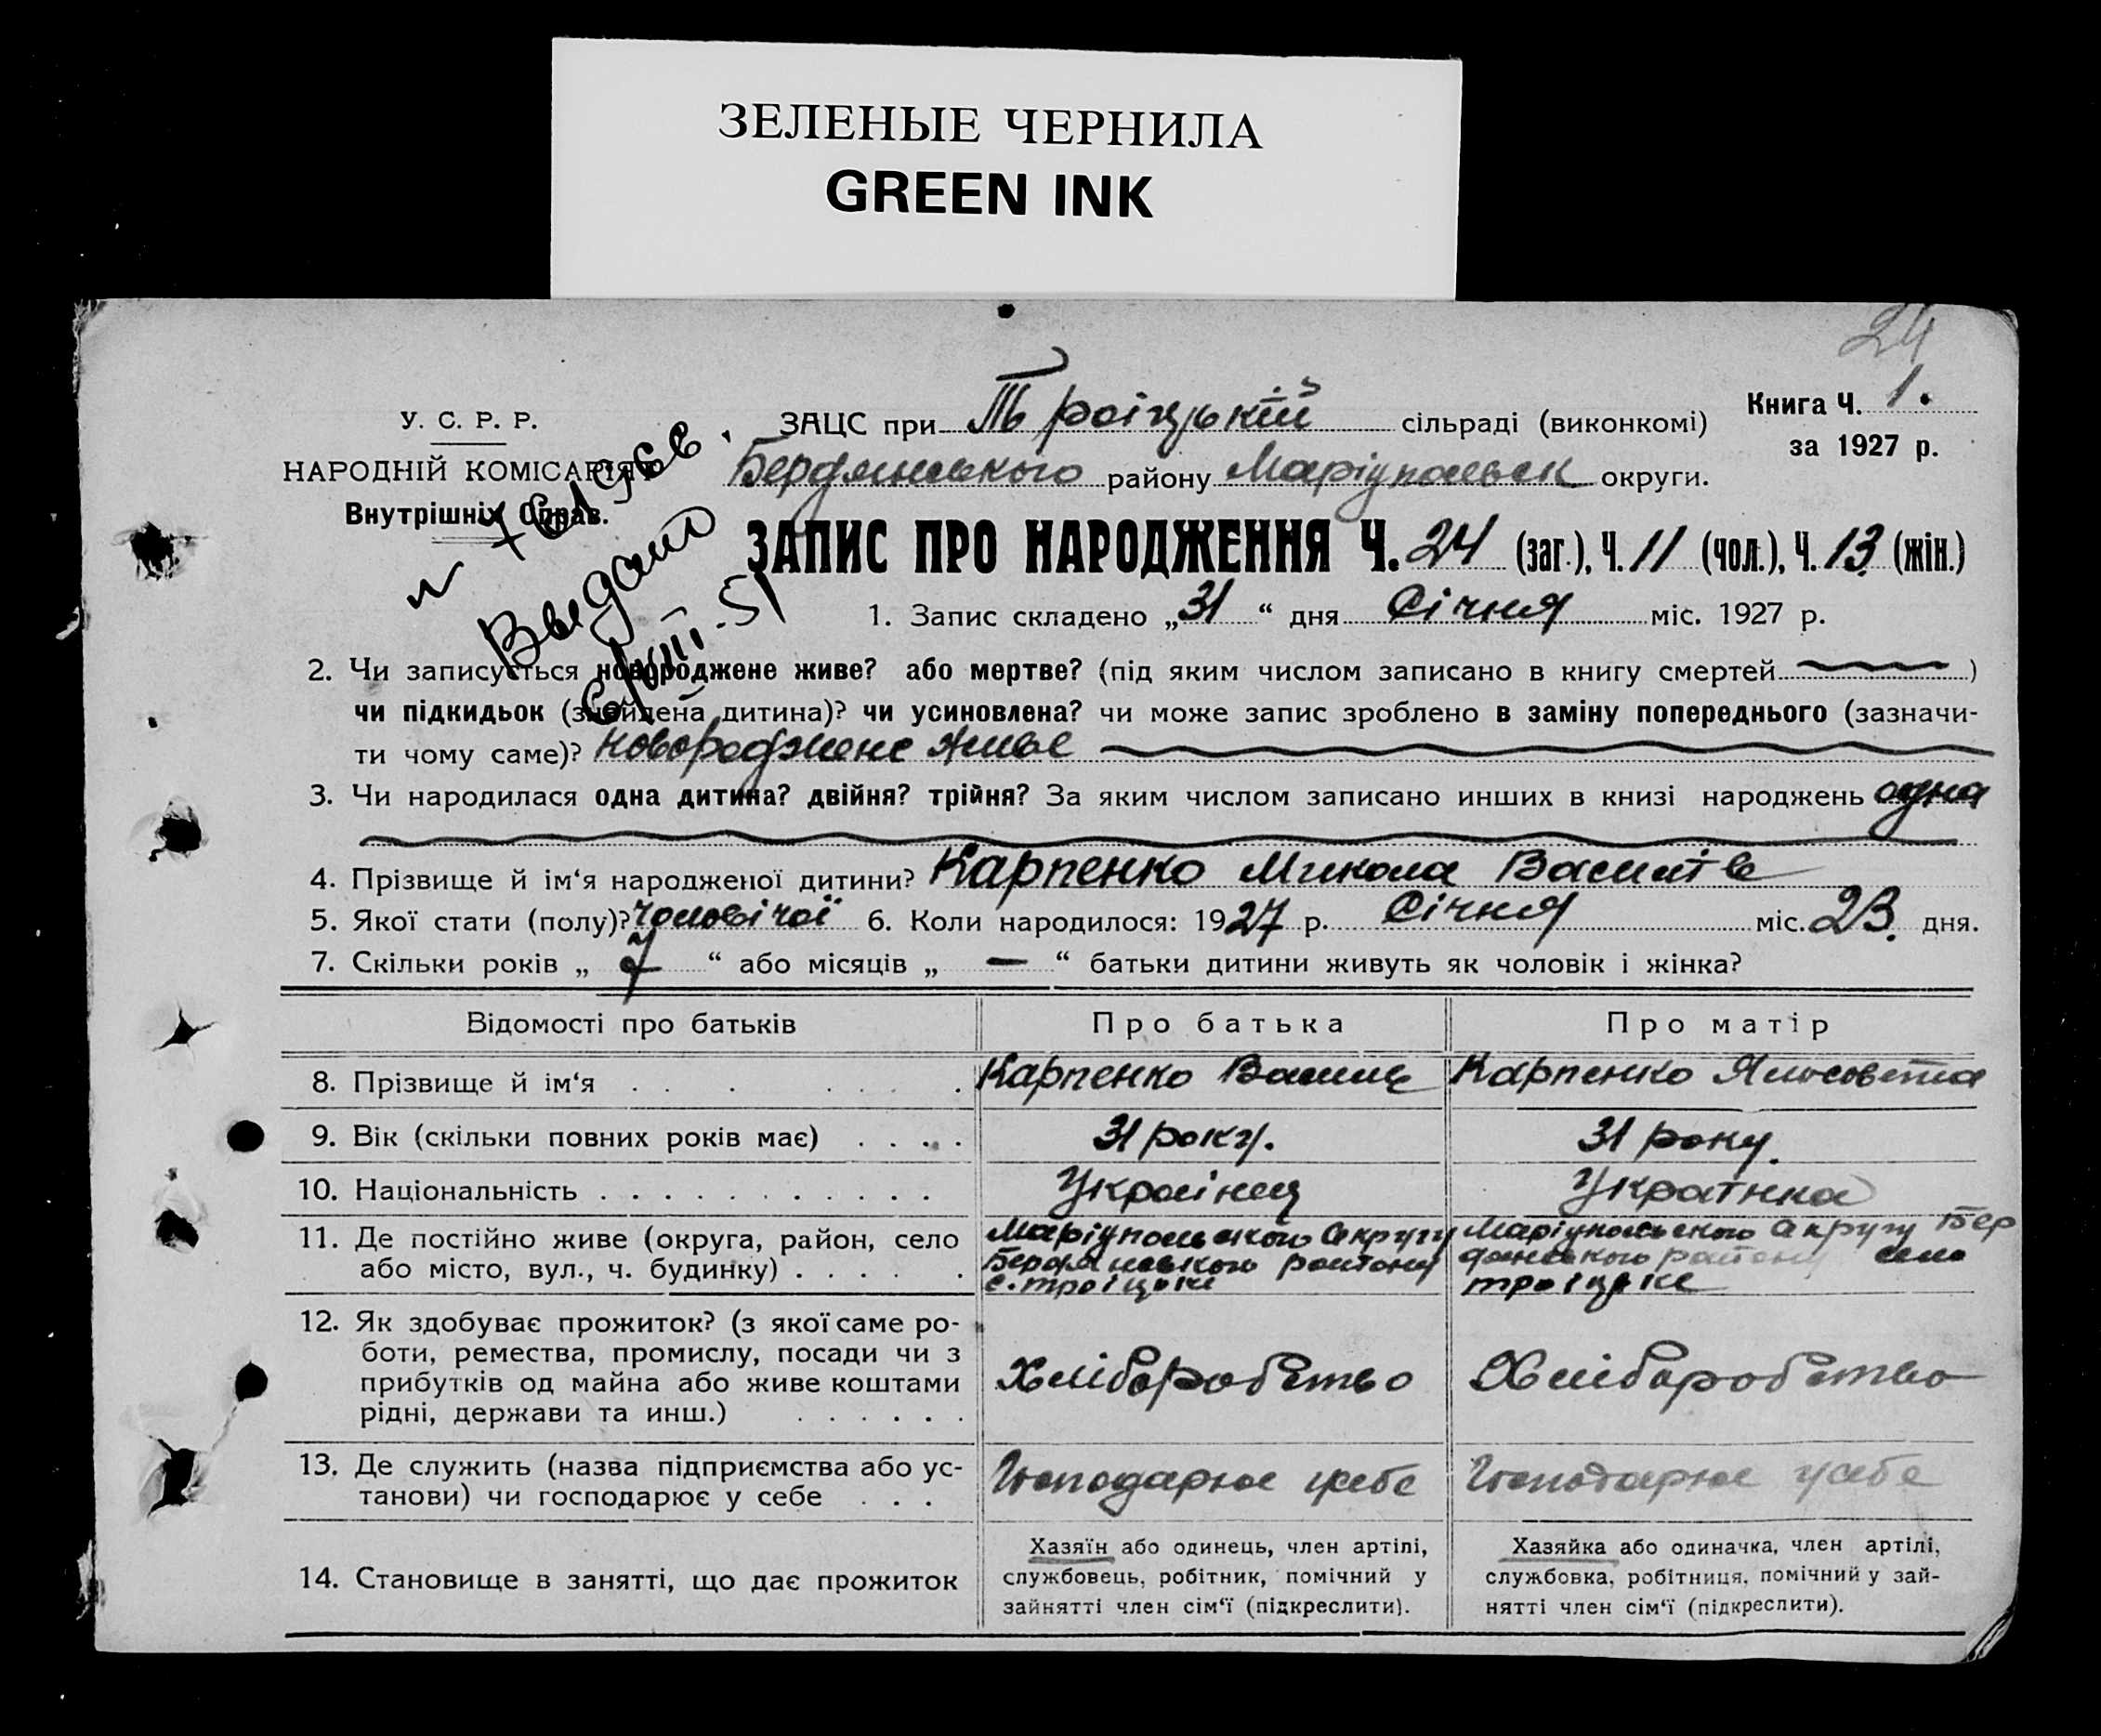 ЗЕЛЕНЫЕ ЧЕРНИЛА
GREEN INK
24
У. С. Р. Р.
НАРОДНІЙ КОМІСАРІЯТ
Внутрішніх Справ.
ЗАЦС при Троіцькій сільраді (виконкомі)
Бердянського району Маріупольськ округи.
Книга Ч. 1.
за 1927 р.
Видано
6/VIII-51
ЗАПИС ПРО НАРОДЖЕННЯ Ч. 24 (заг.), Ч. 11 (чол.), Ч. 13. (жін.)
1. Запис складено „31“ дня Січня міс. 1927 р.
2. Чи записується новороджене живе? або мертве? (під яким числом записано в книгу смертей )
чи підкидьок (знайдена дитина)? чи усиновлена? чи може запис зроблено в заміну попереднього (зазначи-
ти чому саме)? новороджене живе
3. Чи народилася одна дитина? двійня? трійня? За яким числом записано инших в книзі народжень одна
4. Прізвище й ім‘я народженої дитини? Карпенко Микола Василів
5. Якої стати (полу)? чоловічої 6. Коли народилося: 1927 р. Січня міс. 23. дня.
7. Скільки років „ 7 “ або місяців „ — “ батьки дитини живуть як чоловік і жінка?
Відомості про батьків Про батька Про матір
8. Прізвище й ім‘я . . . . . . . Карпенко Василь КарпенкоЯлисовета
9. Вік (скільки повних років має) . . . . 31 року. 31 року.
10. Національність . . . . . . . . . . . Украінец Украінка
11. Де постійно живе (округа, район, село Маріупольського Округу Маріупольського Округу Бер
або місто, вул., ч. будинку) . . . . . . Бердянського району дянського району село
с. троіцьке троіцьке
12. Як здобуває прожиток? (з якої саме ро-
боти, ремества, промислу, посади чи з
прибутків од майна або живе коштами Хліборобство Хліборобство
рідні, держави та инш.) . . . . . .
13. Де служить (назва підприємства або ус- Господарює усебе Господарює усебе
танови) чи господарює у себе . . .
14. Становище в занятті, що дає прожиток
Хазяїн або одинець, член артілі,
службовець, робітник, помічний у
зайнятті член сім‘ї (підкреслити).
Хазяйка або одиначка, член артілі,
службовка, робітниця, помічний у зай-
нятті член сім‘ї (підкреслити).